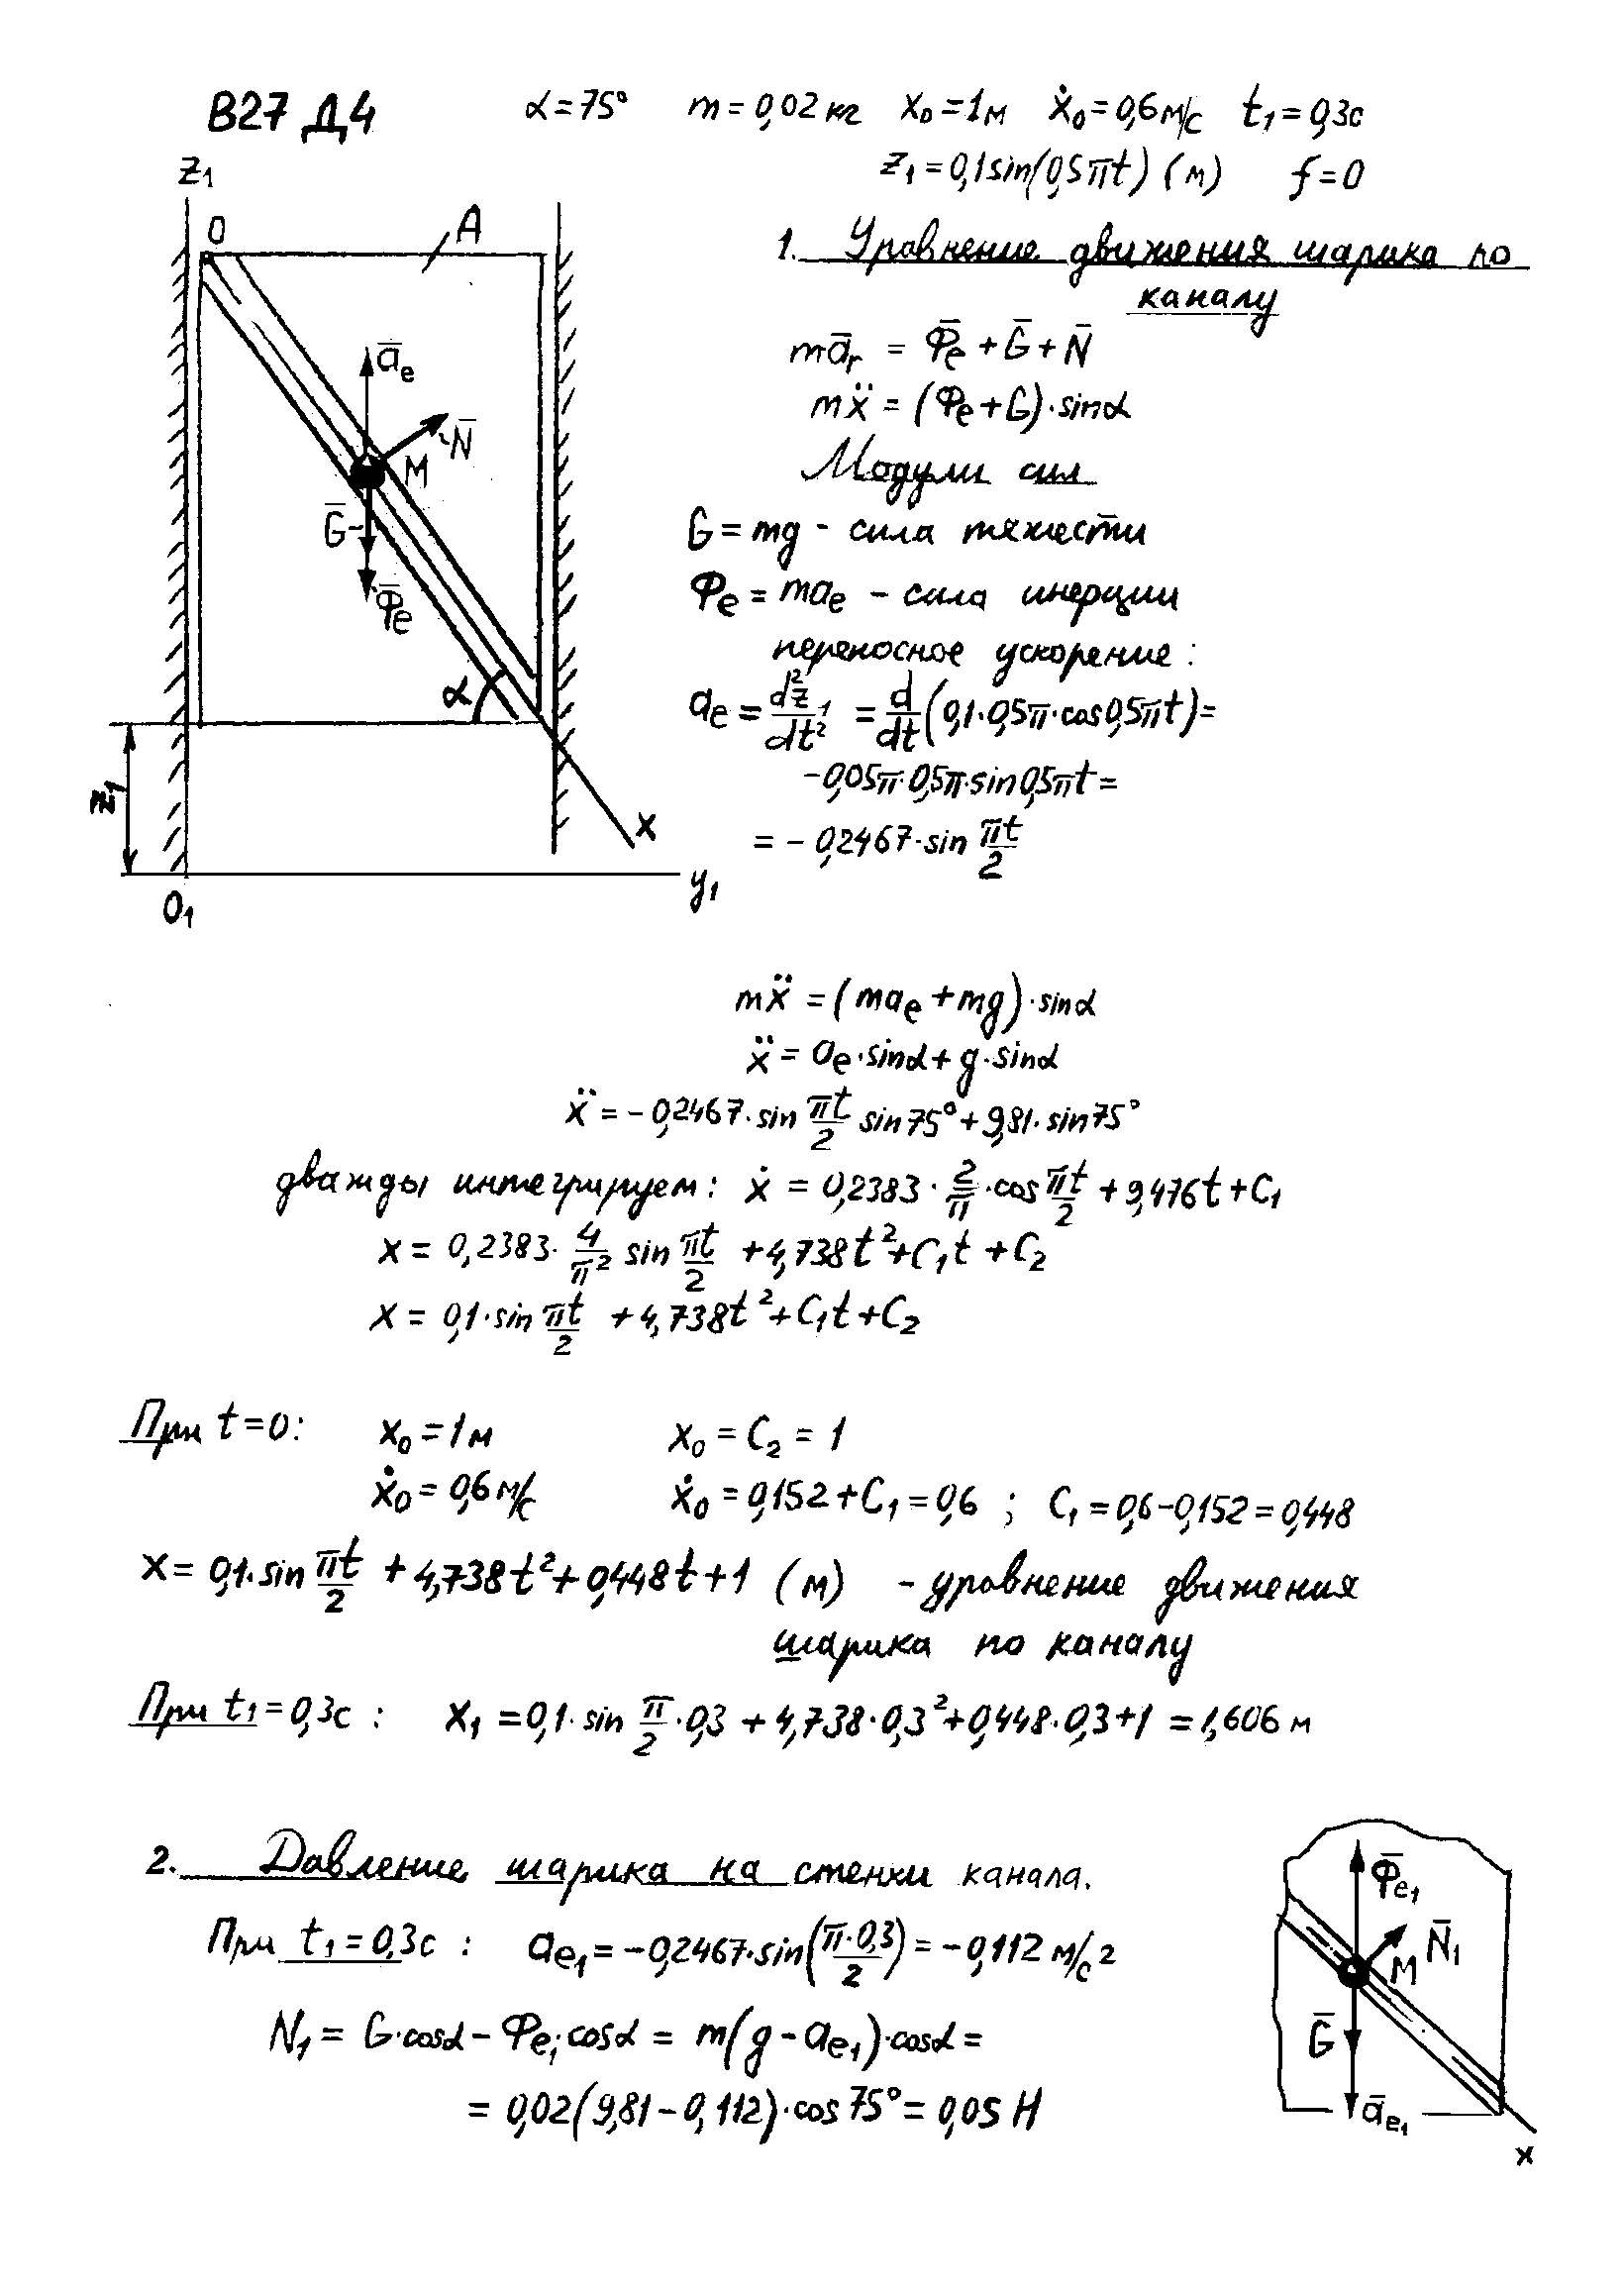 В27 Д4 α=75° m=0,02 кг x₀=1м ẋ₀=0,6м/с t₁=0,3с
z₁=0,1sin(0,5πt) (м) f=0
z₁
O
A
1. Уравнение движения шарика по
каналу
mā̄ᵣ = Φ̄ₑ+Ḡ+N̄
mẍ = (Φₑ+G)·sinα
Модули сил
āₑ
N̄
M
Ḡ
Φ̄ₑ
α
z₁
x
y₁
O₁
G=mg - сила тяжести
Φₑ=maₑ - сила инерции
переносное ускорение:
aₑ = d²z₁/dt² = d/dt(0,1·0,5π·cos0,5πt)=
-0,05π·0,5π·sin0,5πt=
= -0,2467·sin πt/2
mẍ = (maₑ+mg)·sinα
ẍ = aₑ·sinα+g·sinα
ẍ = -0,2467·sin πt/2 sin75°+9,81·sin75°
дважды интегрируем: ẋ = 0,2383·2/π·cos πt/2 +9,476t+C₁
x = 0,2383·4/π² sin πt/2 +4,738t²+C₁t+C₂
x = 0,1·sin πt/2 +4,738t²+C₁t+C₂
При t=0: x₀=1м x₀=C₂=1
ẋ₀=0,6м/с ẋ₀=0,152+C₁=0,6 ; C₁=0,6-0,152=0,448
x=0,1·sin πt/2 +4,738t²+0,448t+1 (м) - уравнение движения
шарика по каналу
При t₁=0,3с : x₁ =0,1·sin π/2·0,3+4,738·0,3²+0,448·0,3+1 =1,606 м
2. Давление шарика на стенки канала.
При t₁=0,3с : aₑ₁=-0,2467·sin(π·0,3/2)=-0,112 м/с2
N₁= G·cosα-Φₑ₁·cosα = m(g-aₑ₁)·cosα=
= 0,02(9,81-0,112)·cos75°=0,05 Н
Φ̄ₑ₁
N̄₁
M
Ḡ
āₑ₁
x